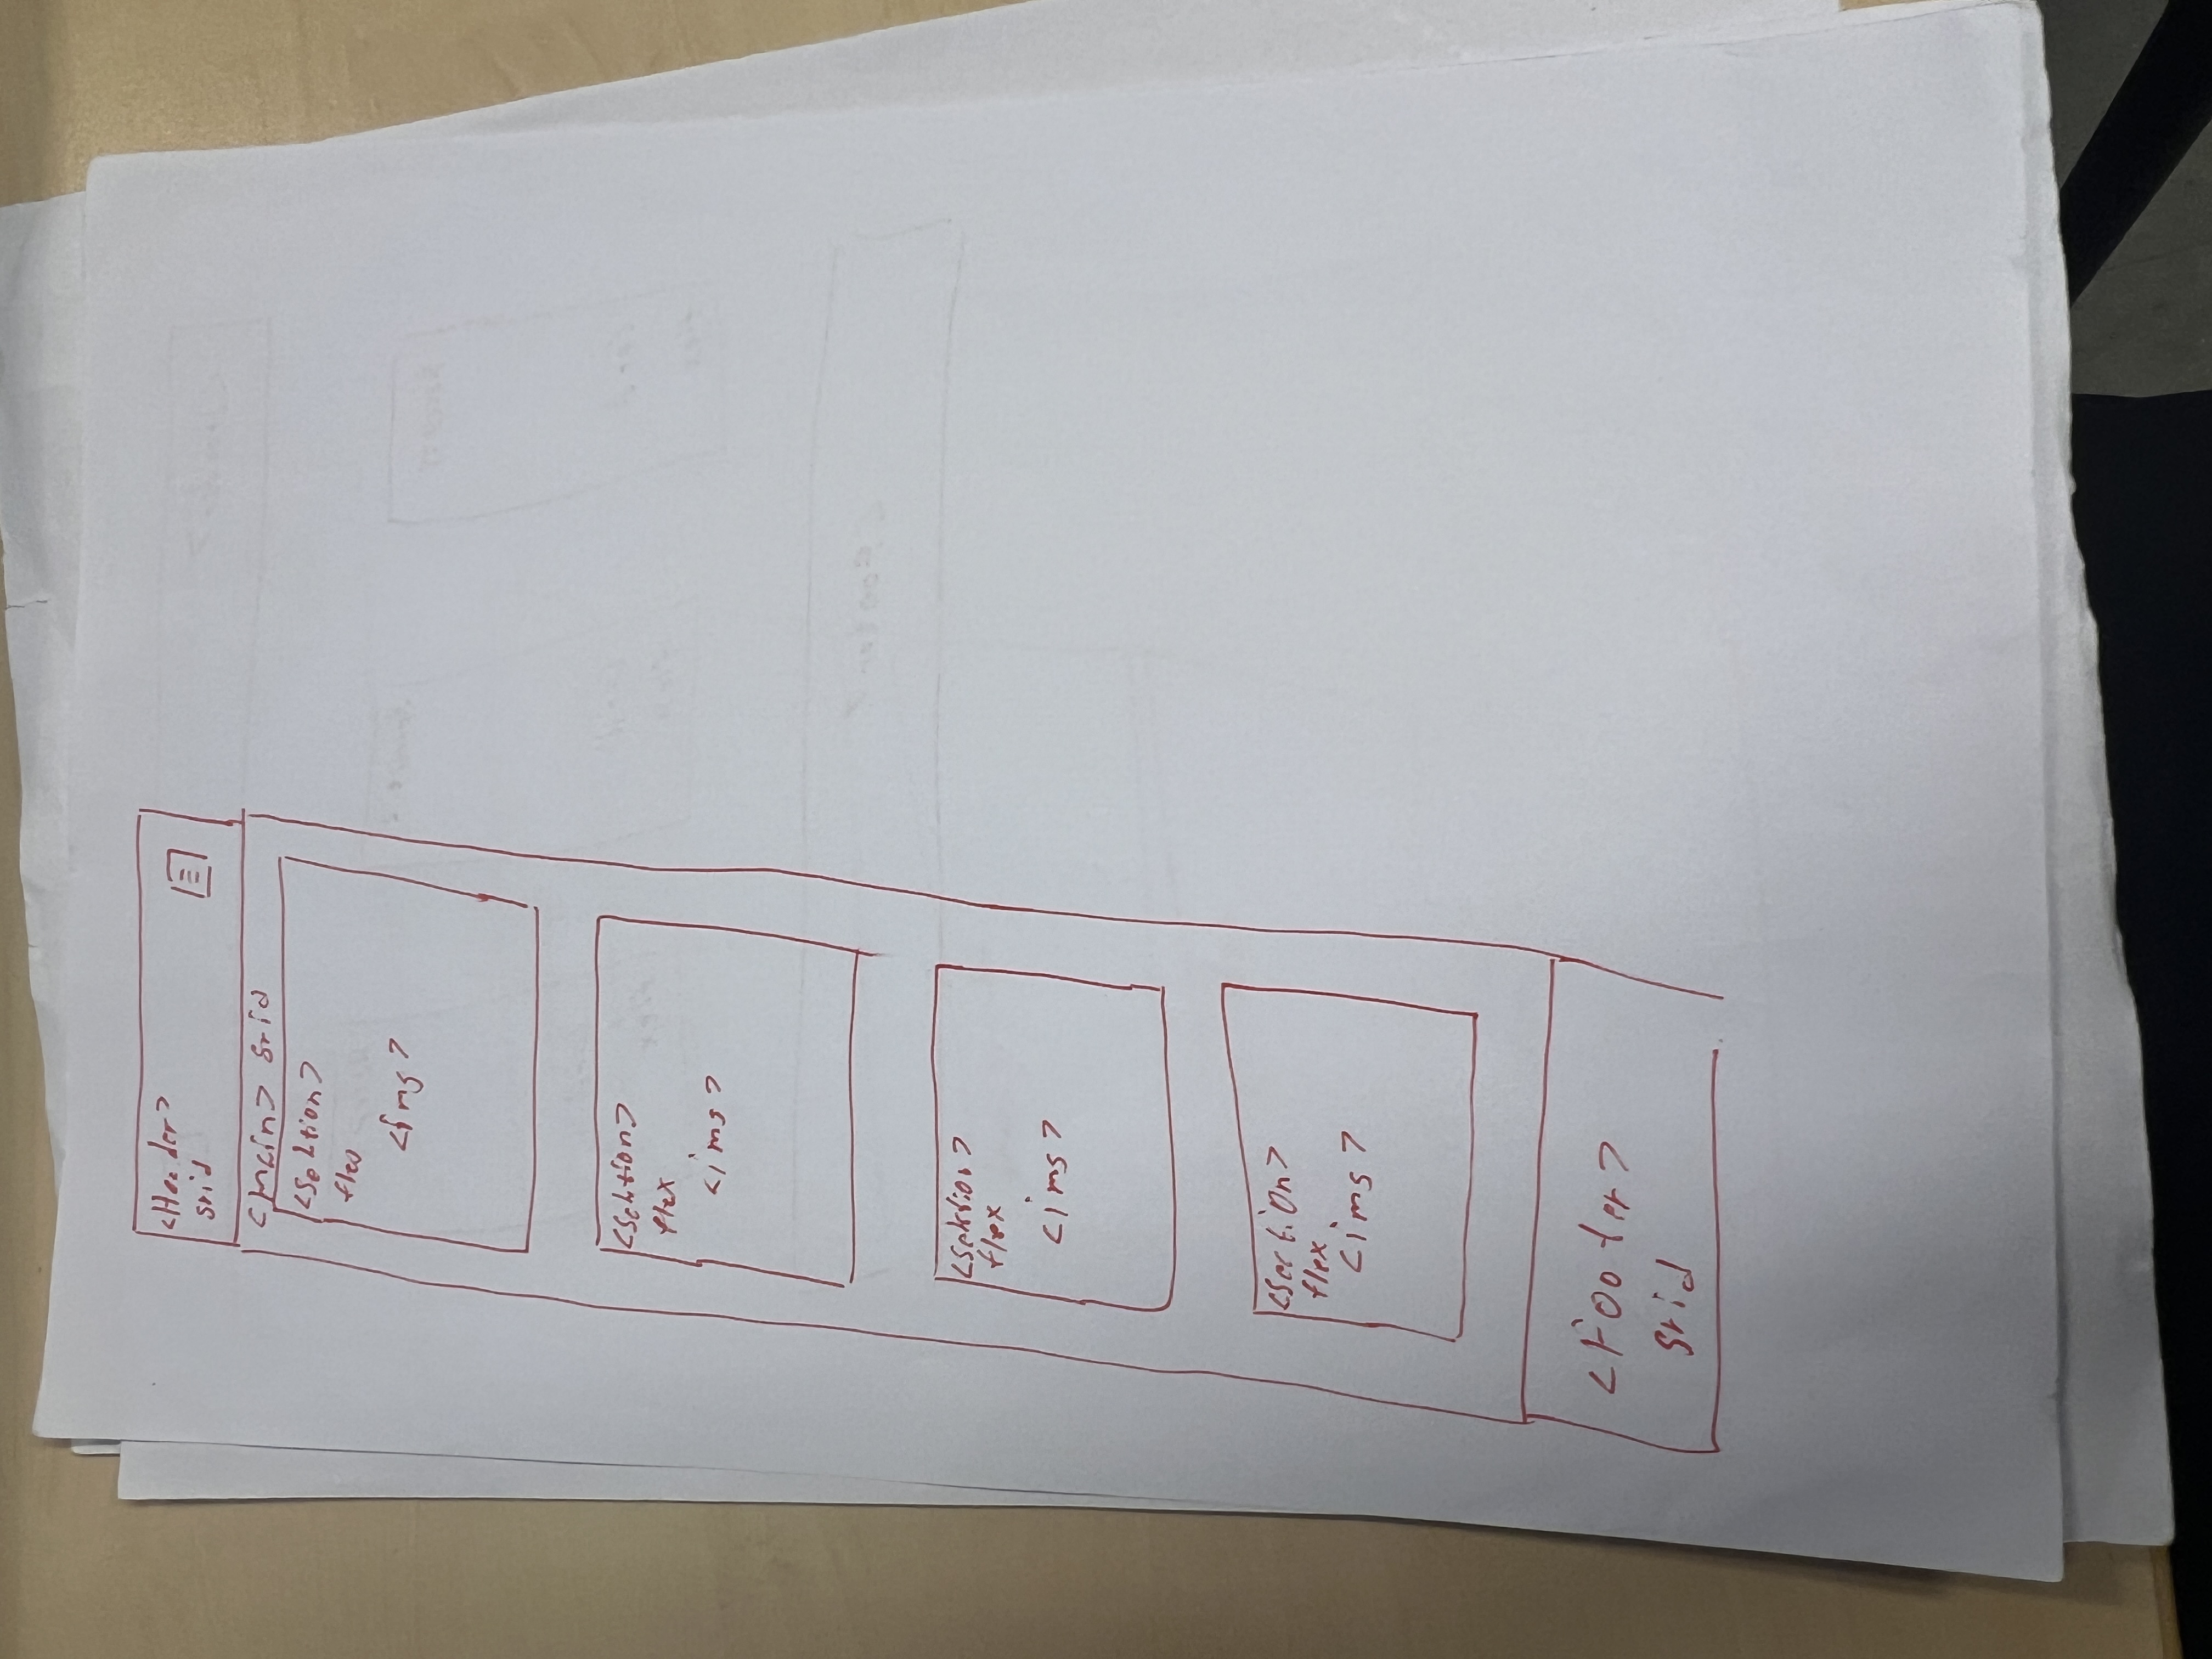 <Header>
grid
<main> grid
<Sektion>
flex
<img>
<Sektion>
flex
<img>
<Sektion>
flex
<img>
<Section>
flex
<img>
<Footer>
grid